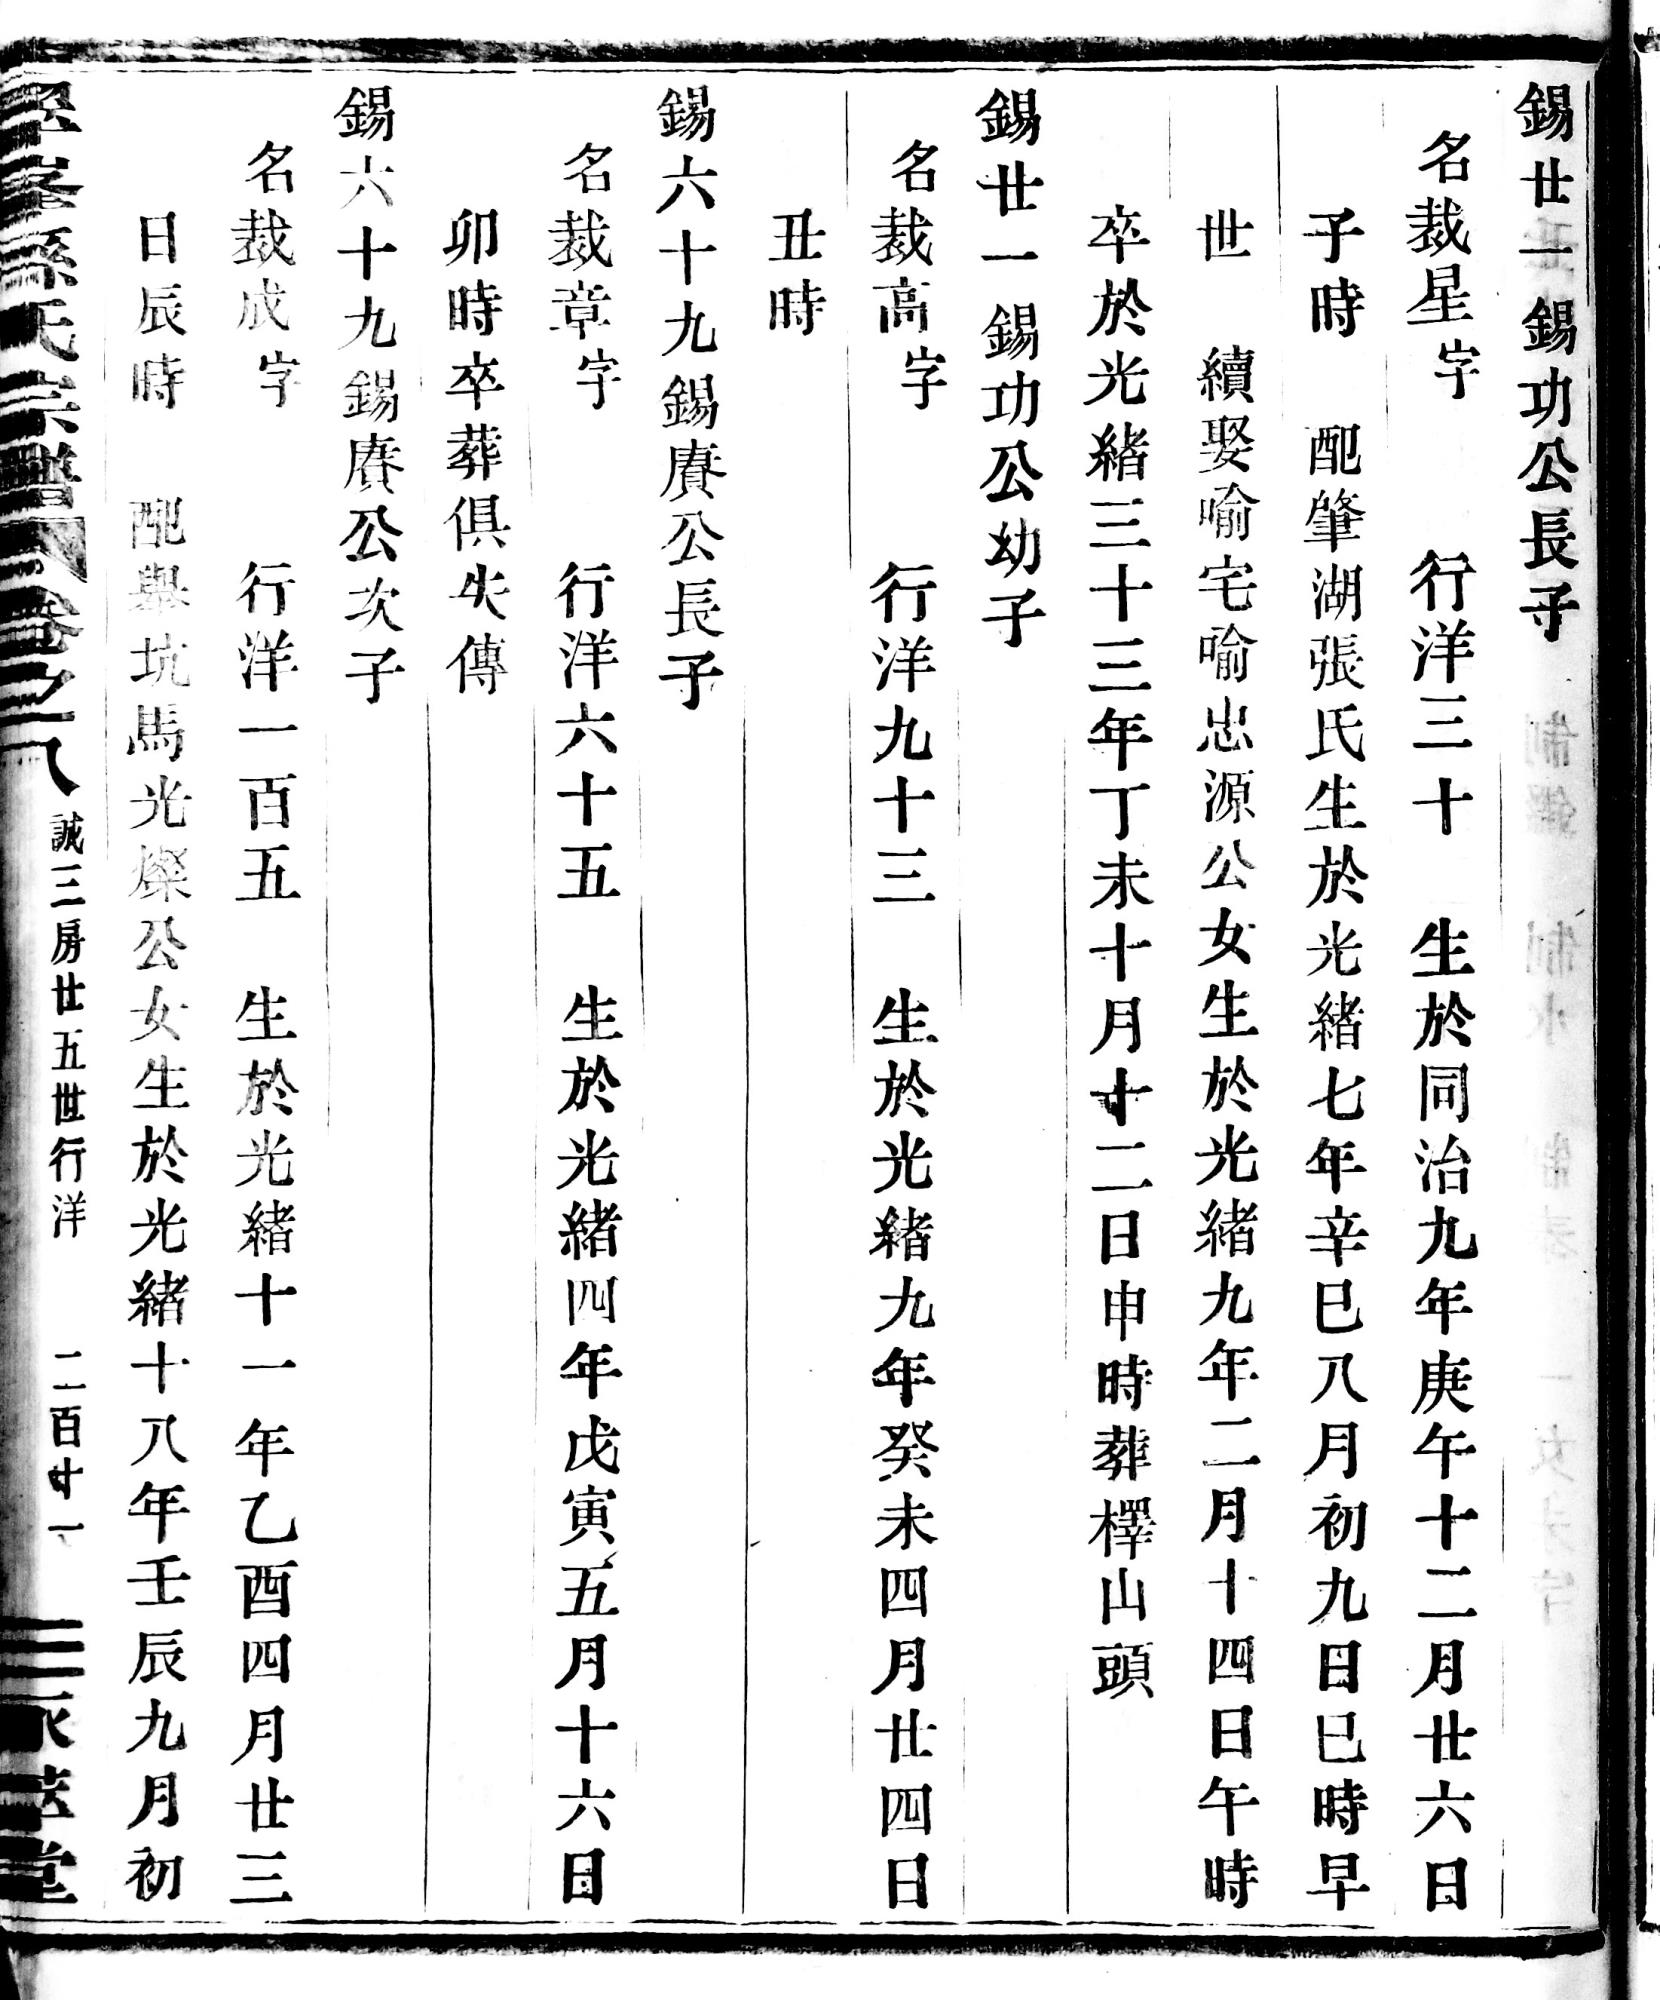 錫廿一錫功公長子
名裁星字 行洋三十 生於同治九年庚午十二月廿六日
子時 配肇湖張氏生於光緒七年辛巳八月初九日巳時早
世 續娶喻宅喻忠源公女生於光緒九年二月十四日午時
卒於光緒三十三年丁未十月十二日申時葬檡山頭
錫廿一錫功公幼子
名裁高字 行洋九十三 生於光緒九年癸未四月廿四日
丑時
錫六十九錫賡公長子
名裁章字 行洋六十五 生於光緒四年戊寅五月十六日
卯時卒葬俱失傳
錫六十九錫賡公次子
名裁成字 行洋一百五 生於光緒十一年乙酉四月廿三
日辰時 配舉坑馬光燦公女生於光緒十八年壬辰九月初
孫氏宗譜 卷之八 誠三房廿五世行洋 二百廿一 堂